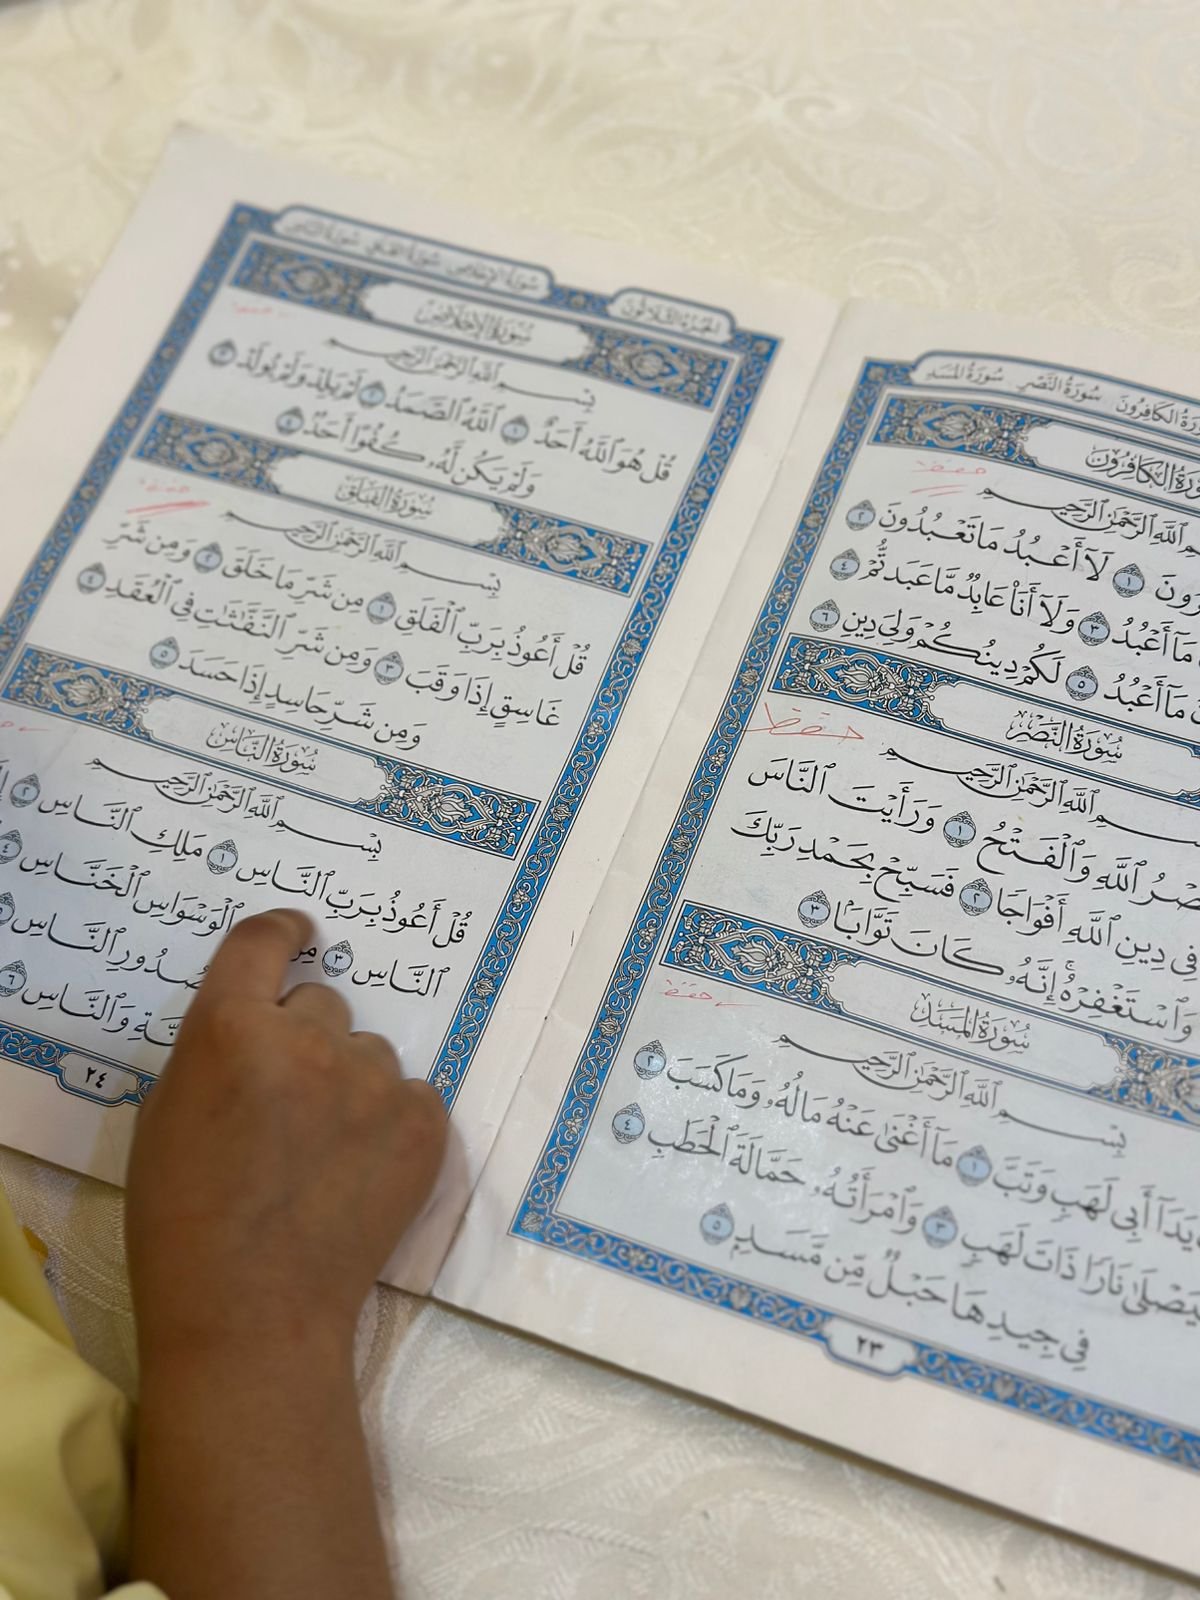 سُورَةُ المَسَدِ سُورَةُ النَّصْرِ سُورَةُ الكَافِرُونَ
سُورَةُ الكَافِرُونَ
اللَّهِ الرَّحْمَٰنِ الرَّحِيمِ
حفظ
لَآ أَعْبُدُ مَا تَعْبُدُونَ ٢
١
مَآ أَعْبُدُ ٣ وَلَآ أَنَا۠ عَابِدٌ مَّا عَبَدتُّمْ ٤
مَآ أَعْبُدُ ٥ لَكُمْ دِينُكُمْ وَلِيَ دِينِ ٦
سُورَةُ النَّصْرِ
حفظ
اللَّهِ الرَّحْمَٰنِ الرَّحِيمِ
اللَّهِ وَالْفَتْحُ ١ وَرَأَيْتَ النَّاسَ
فِي دِينِ اللَّهِ أَفْوَاجًا ٢ فَسَبِّحْ بِحَمْدِ رَبِّكَ
وَاسْتَغْفِرْهُ إِنَّهُۥ كَانَ تَوَّابًۢا ٣
سُورَةُ المَسَدِ
حفظ
بِسْمِ اللَّهِ الرَّحْمَٰنِ الرَّحِيمِ
يَدَآ أَبِي لَهَبٍ وَتَبَّ ١ مَآ أَغْنَىٰ عَنْهُ مَالُهُۥ وَمَا كَسَبَ ٢
سَيَصْلَىٰ نَارًا ذَاتَ لَهَبٍ ٣ وَامْرَأَتُهُۥ حَمَّالَةَ الْحَطَبِ ٤
فِي جِيدِهَا حَبْلٌ مِّن مَّسَدٍۭ ٥
٢٣
الجُزْءُ الثَّلَاثُونَ
سُورَةُ الإِخْلَاصِ سُورَةُ الفَلَقِ سُورَةُ النَّاسِ
سُورَةُ الإِخْلَاصِ
بِسْمِ اللَّهِ الرَّحْمَٰنِ الرَّحِيمِ
قُلْ هُوَ اللَّهُ أَحَدٌ ١ اللَّهُ الصَّمَدُ ٢ لَمْ يَلِدْ وَلَمْ يُولَدْ ٣
وَلَمْ يَكُن لَّهُۥ كُفُوًا أَحَدٌۢ ٤
سُورَةُ الفَلَقِ
حفظ
بِسْمِ اللَّهِ الرَّحْمَٰنِ الرَّحِيمِ
قُلْ أَعُوذُ بِرَبِّ الْفَلَقِ ١ مِن شَرِّ مَا خَلَقَ ٢ وَمِن شَرِّ
غَاسِقٍ إِذَا وَقَبَ ٣ وَمِن شَرِّ النَّفَّٰثَٰتِ فِي الْعُقَدِ ٤
وَمِن شَرِّ حَاسِدٍ إِذَا حَسَدَ ٥
سُورَةُ النَّاسِ
بِسْمِ اللَّهِ الرَّحْمَٰنِ الرَّحِيمِ
قُلْ أَعُوذُ بِرَبِّ النَّاسِ ١ مَلِكِ النَّاسِ ٢
النَّاسِ ٣ الْوَسْوَاسِ الْخَنَّاسِ ٤
صُدُورِ النَّاسِ
وَالنَّاسِ ٦
٢٤